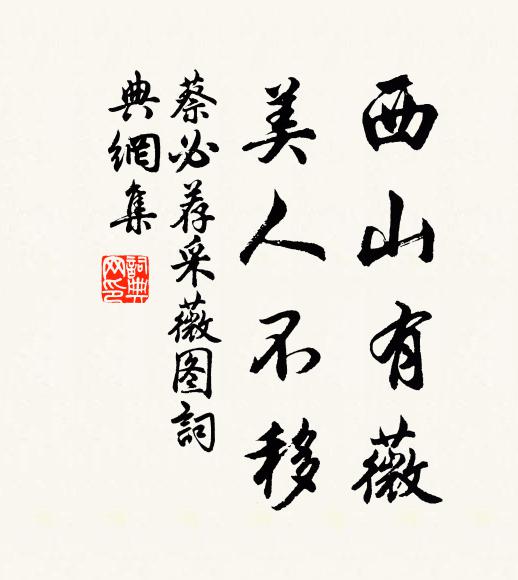 西山有薇
美人不移
蔡必荐采薇图詞
典網集
詞典网印